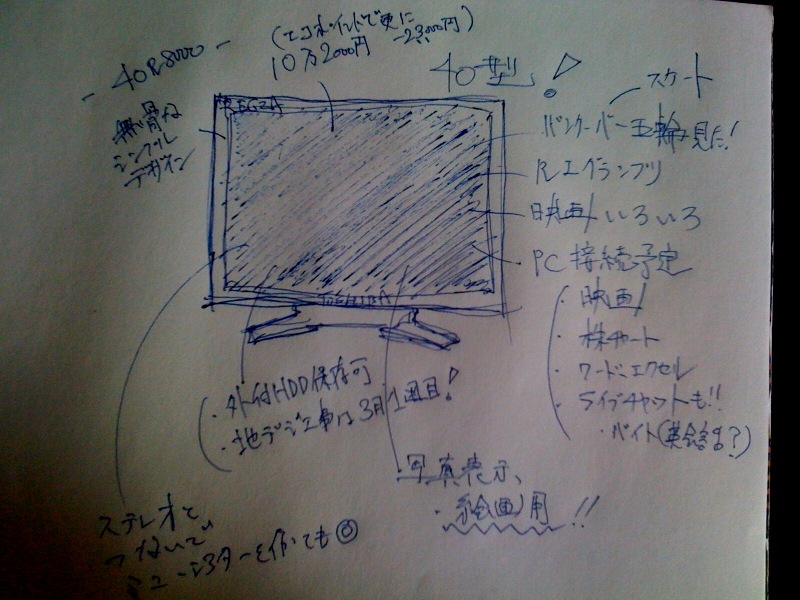 - 40R8000 -
(エコポイントで更に
10万2000円 -23000円)
40型!
REGZA
無骨な
シンプル
デザイン
スケート
バンクーバー五輪見た!
R-1グランプリ
映画いろいろ
PC接続予定
・映画
・株チャート
・ワード、エクセル
・ライブチャットも!!
・バイト(英会話?)
TOSHIBA
・外付HDD保存可
・地デジ工事は3月1週目!
・写真表示、
・絵画用!!
ステレオと
つないで、
シアターを作っても◎